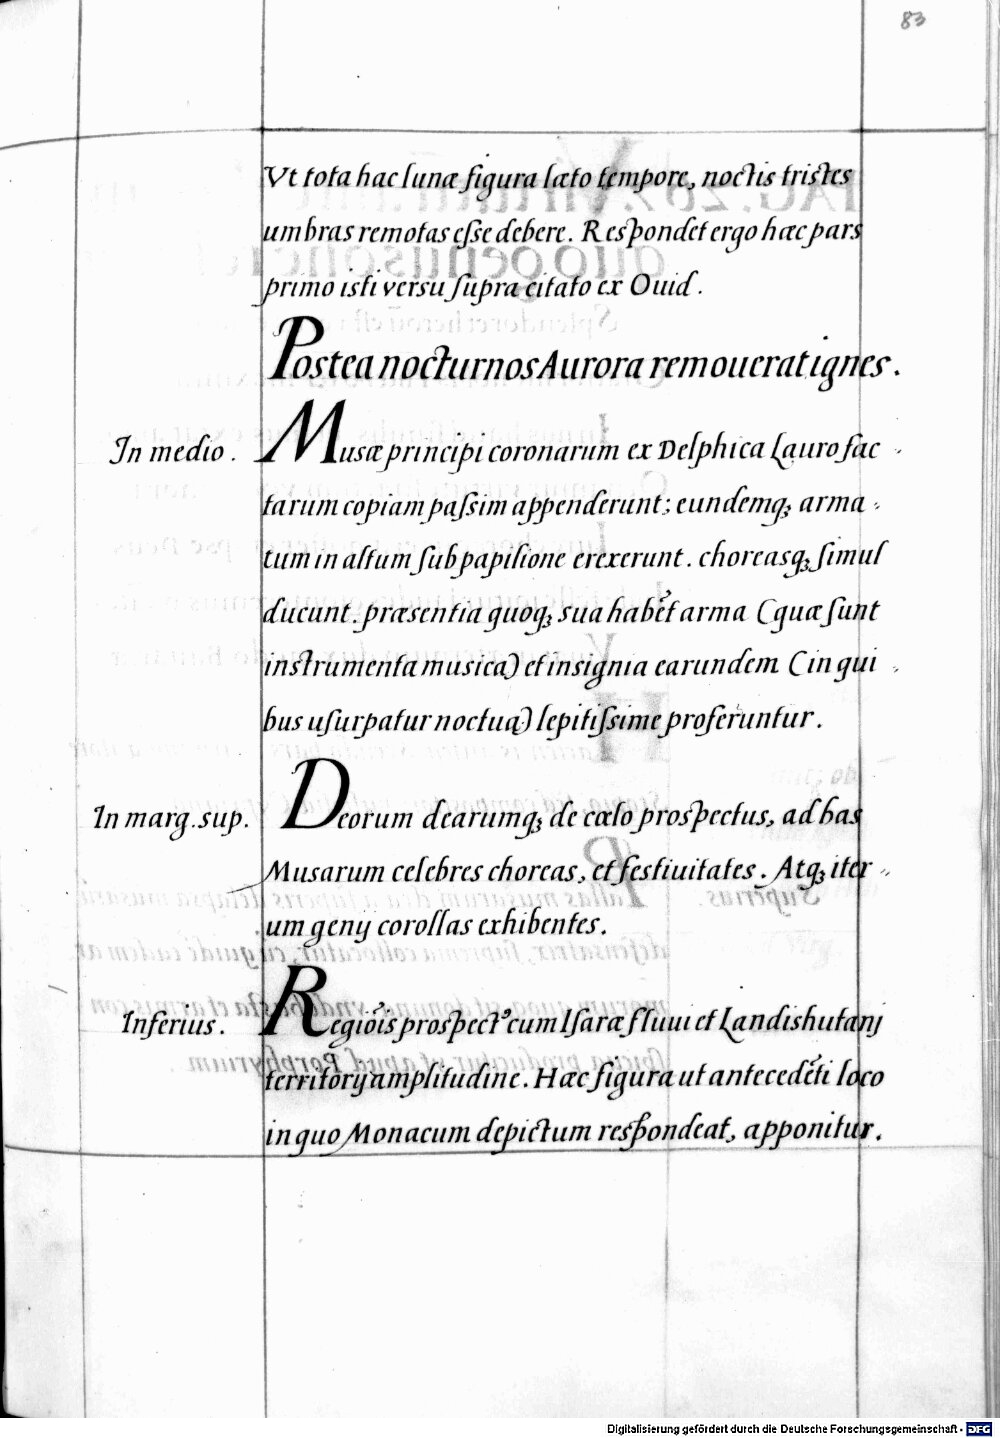 83
Vt tota hac lunæ figura læto tempore, noctis tristes
umbras remotas eſse debere. Respondet ergo hæc pars
primo isti versu ſupra citato ex Ouid.
Postea nocturnos Aurora remouerat ignes.
In medio. Musæ principi coronarum ex Delphica Lauro fac
tarum copiam paſsim appenderunt; eundemqꝫ arma
tum in altum ſub papilione erexerunt. choreasqꝫ ſimul
ducunt. præsentia quoqꝫ sua habēt arma (quæ ſunt
instrumenta musica) et insignia earundem (in qui
bus uſurpatur noctua) lepitiſsime proferuntur.
In marg. sup. Deorum dearumqꝫ de cœlo prospectus, ad has
Musarum celebres choreas, et festiuitates. Atqꝫ iter
um genij corollas exhibentes.
Inferius. Regiōis prospectꝰ cum Isaræ fluui et Landishutanj
territorij amplitudine. Hæc figura ut antecedēti loco
in quo Monacum depictum respondeat, apponitur.
Digitalisierung gefördert durch die Deutsche Forschungsgemeinschaft - DFG